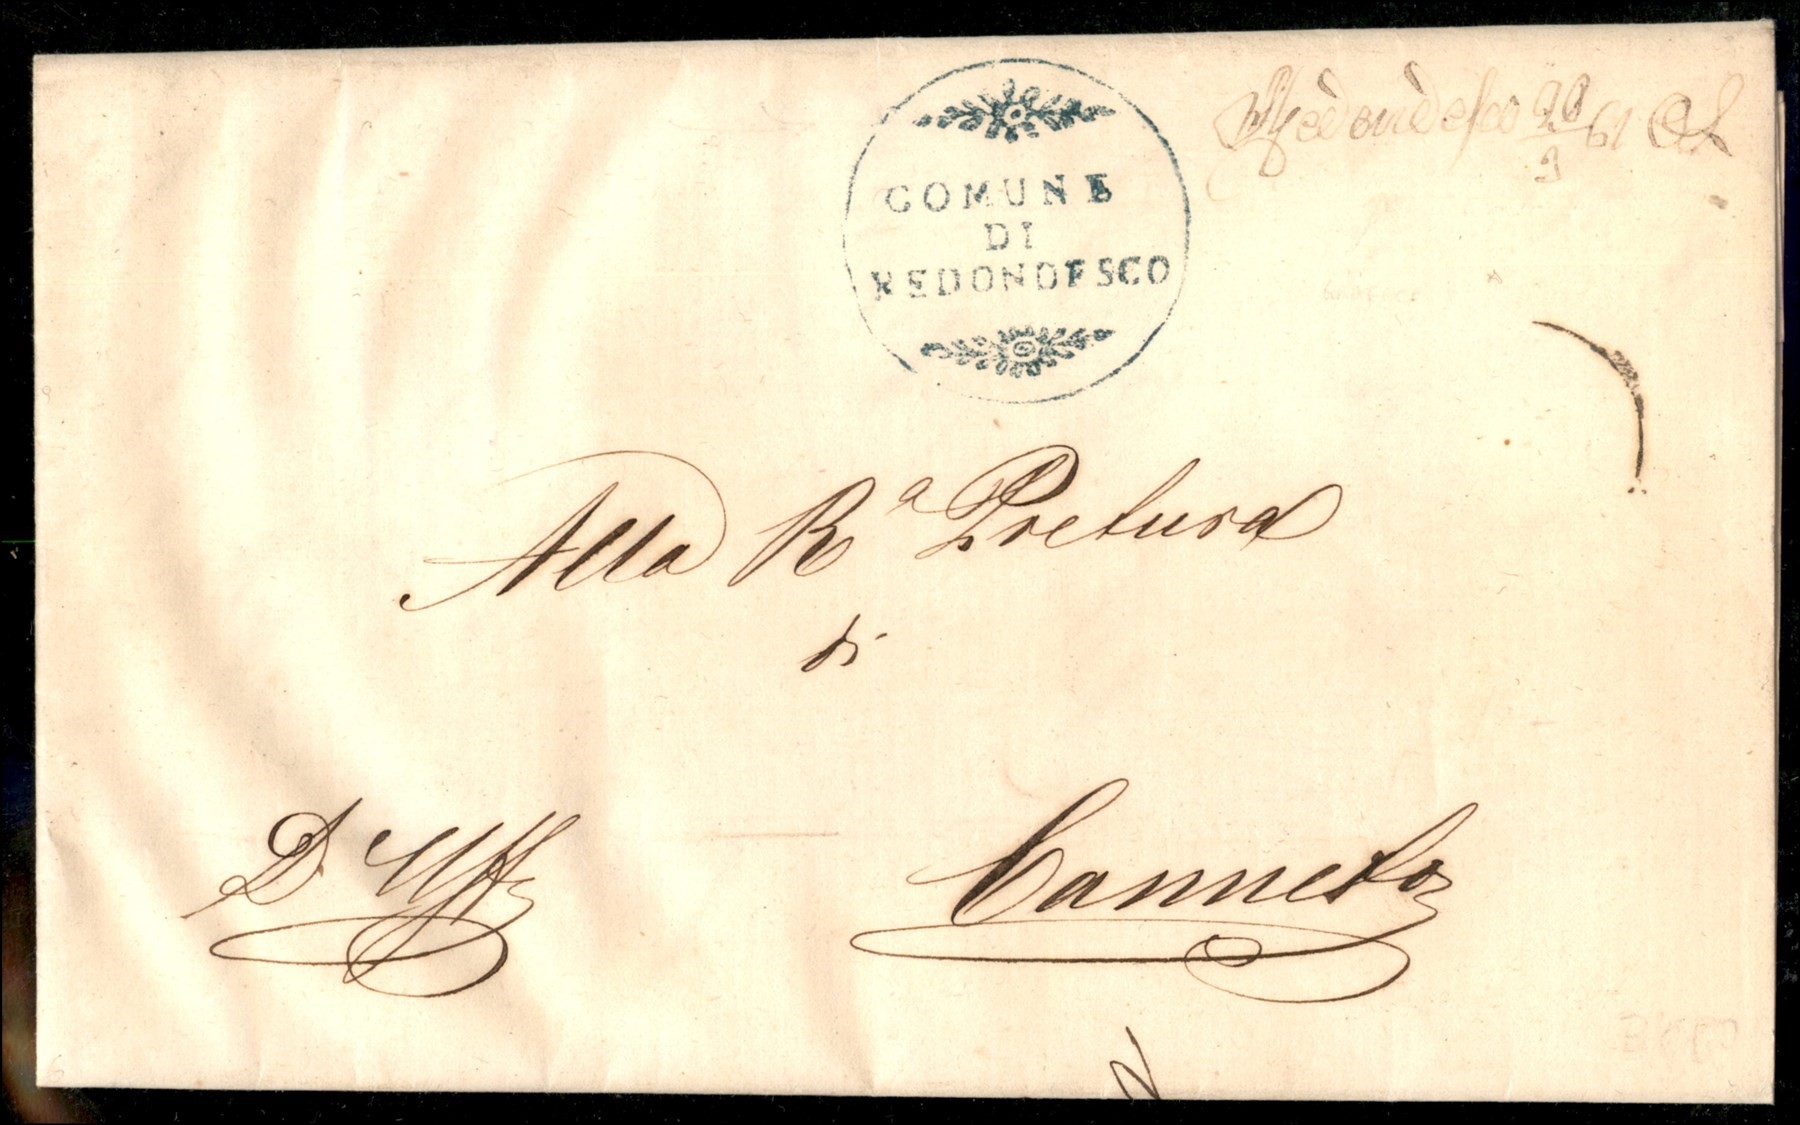 COMUNE
DI
REDONDESCO
Redondesco 20/3 61
Alla R.a Pretura
di
D'Uff
Canneto